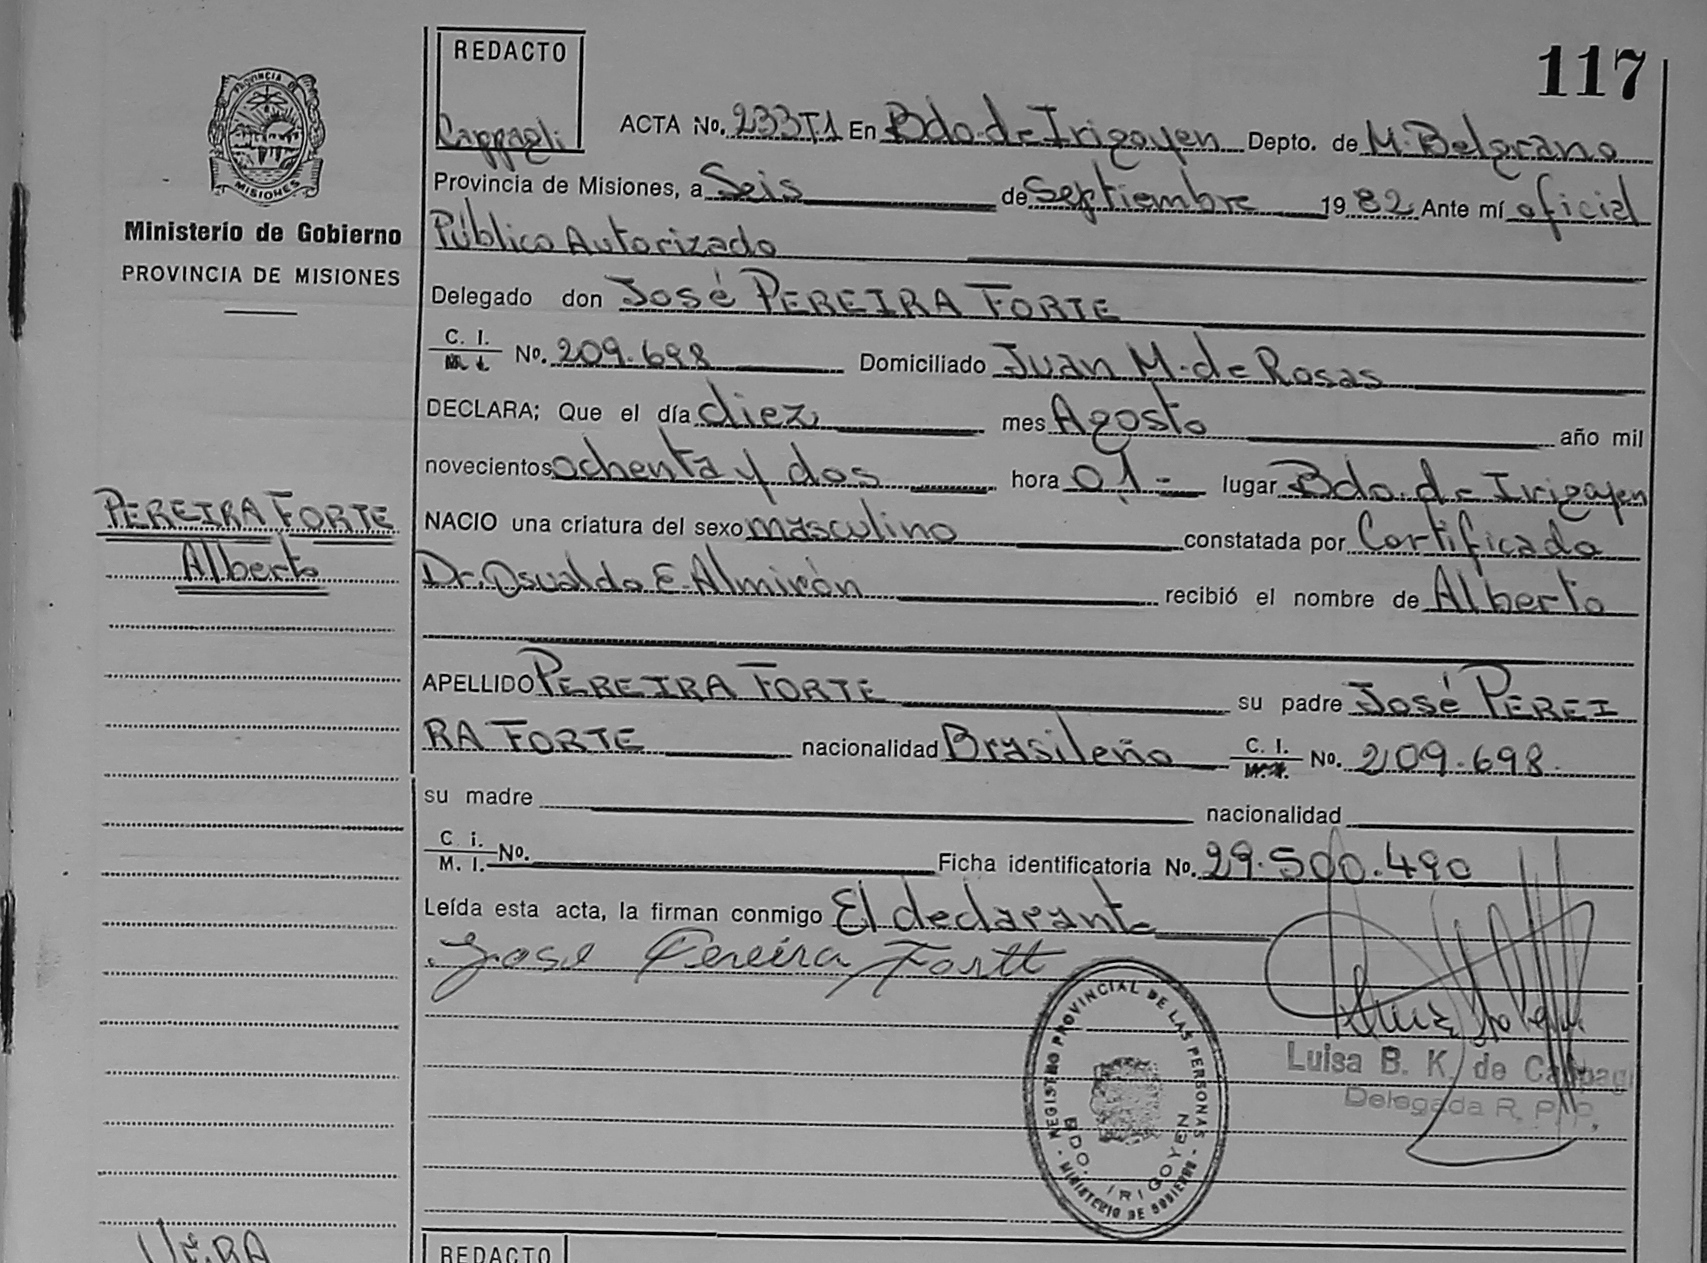 117
REDACTO
Cappagli
PROVINCIA DE
MISIONES
Ministerio de Gobierno
PROVINCIA DE MISIONES
PEREIRA FORTE
Alberto
ACTA No. 233T1 En Bdo. de Irigoyen Depto. de M. Belgrano
Provincia de Misiones, a Seis de Septiembre 1982 Ante mí oficial
Público Autorizado
Delegado don José PEREIRA FORTE
C. I. No. 209.698 Domiciliado Juan M. de Rosas
DECLARA; Que el día diez mes Agosto año mil
novecientos ochenta y dos hora 01- lugar Bdo. de Irigoyen
NACIO una criatura del sexo masculino constatada por Certificado
Dr. Osvaldo E. Almirón recibió el nombre de Alberto
APELLIDO PEREIRA FORTE su padre José PEREI
RA FORTE nacionalidad Brasileño C. I. No. 209.698.
su madre nacionalidad
C. i. M. I. No. Ficha identificatoria No. 29.500.490
Leída esta acta, la firman conmigo El declarante
Jose Pereira Fortt
REGISTRO PROVINCIAL DE LAS PERSONAS
BDO. IRIGOYEN
- MINISTERIO DE GOBIERNO -
Luisa B. K. de
Delegada R. P. P.
REDACTO